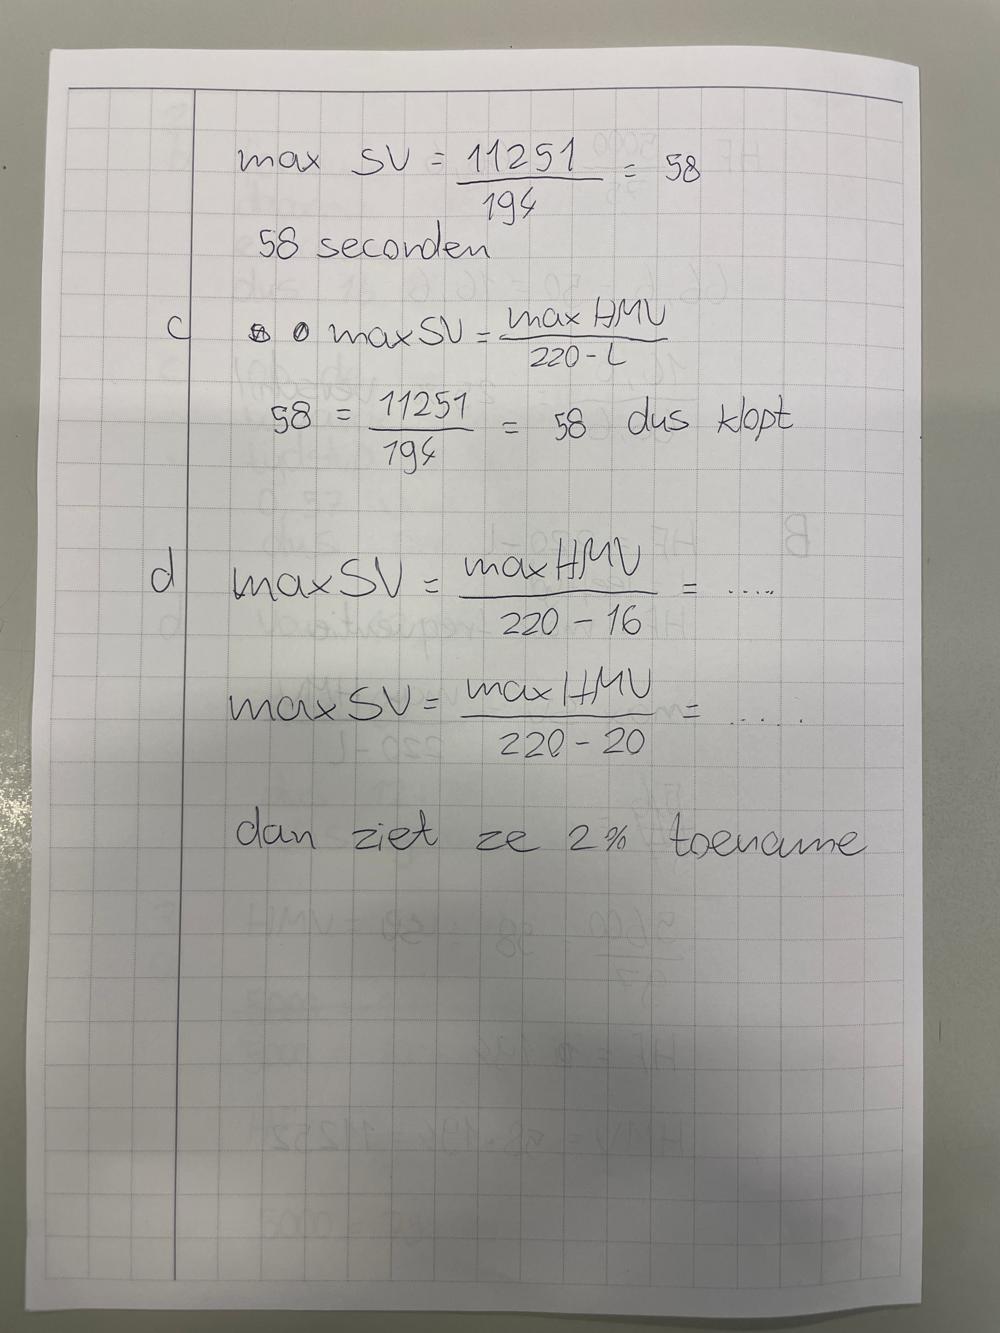 max SV = 11251 / 194 = 58
58 seconden
c max SV = max HMV / 220 - L
58 = 11251 / 194 = 58 dus klopt
d max SV = max HMV / 220 - 16 = ....
max SV = max HMV / 220 - 20 = .....
dan ziet ze 2% toename